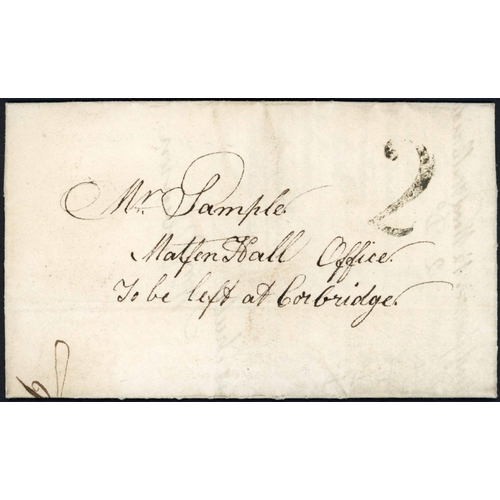 2
Mr. Sample
Matfen Hall Office
To be left at Corbridge